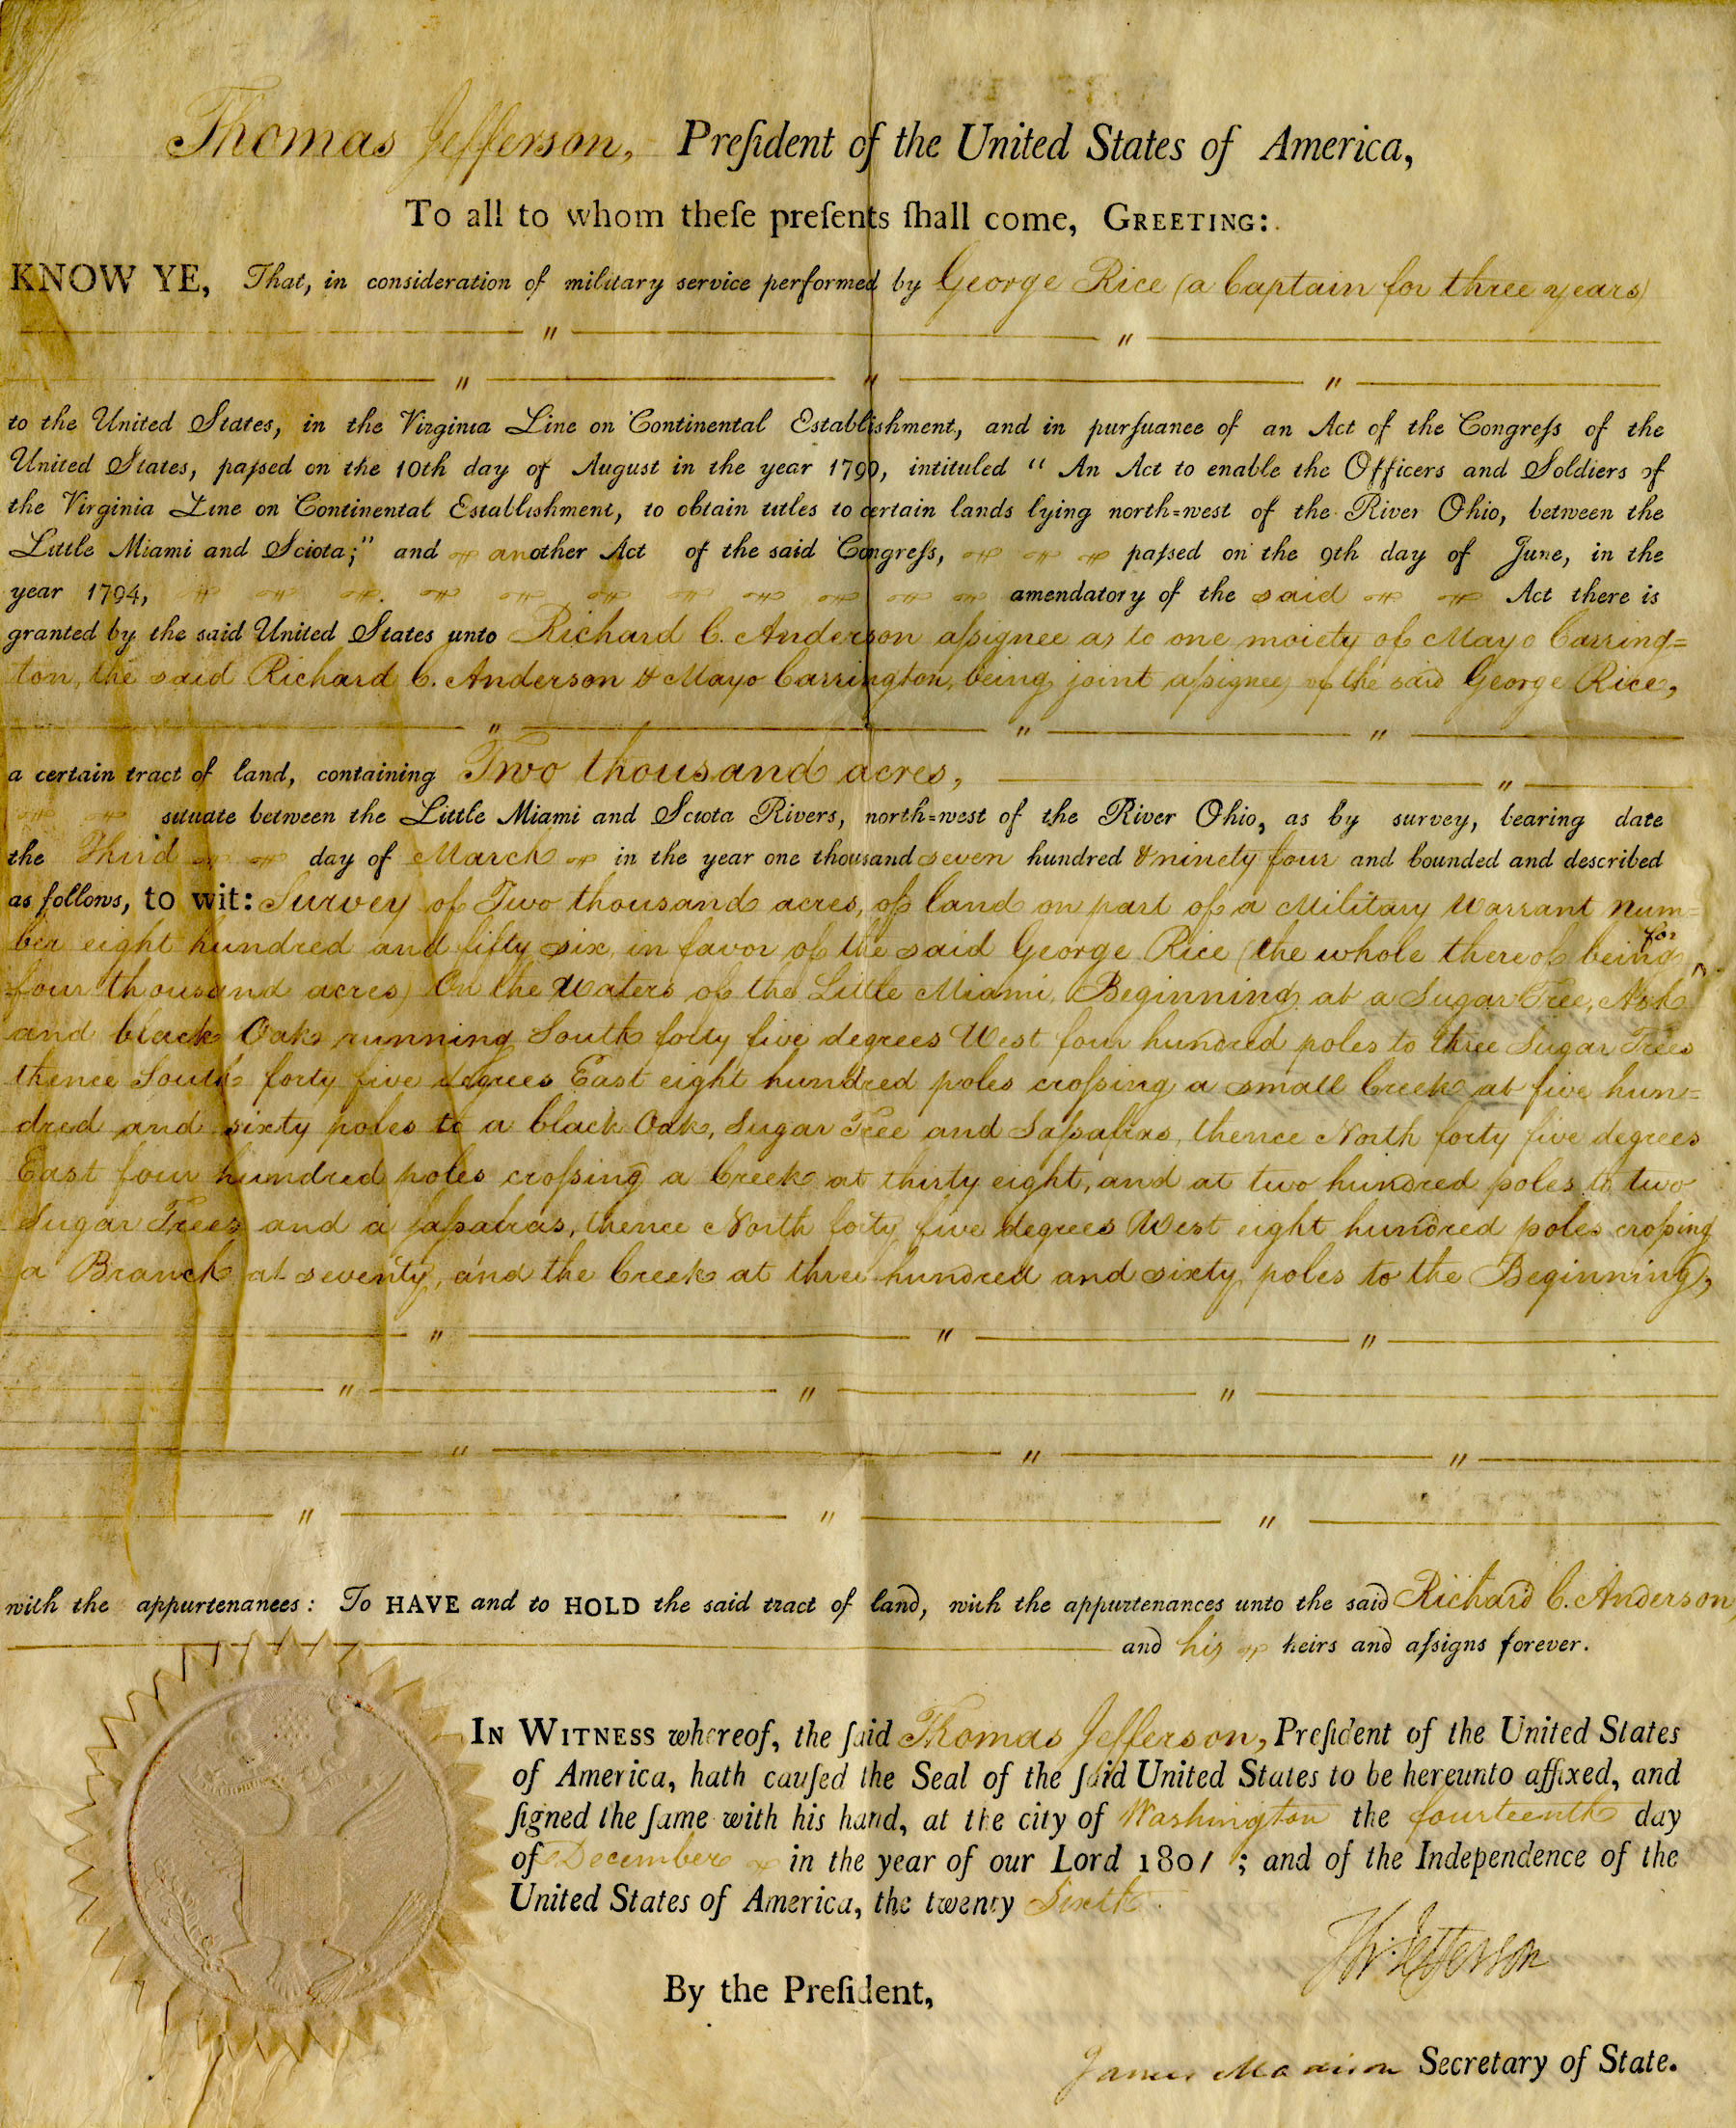 Thomas Jefferson, Preſident of the United States of America,
To all to whom theſe preſents ſhall come, GREETING:
KNOW YE, That, in consideration of military service performed by George Rice (a Captain for three years)
to the United States, in the Virginia Line on Continental Establishment, and in purſuance of an Act of the Congreſs of the
United States, paſsed on the 10th day of August in the year 1790, intituled “ An Act to enable the Officers and Soldiers of
the Virginia Line on Continental Establishment, to obtain titles to certain lands lying north=west of the River Ohio, between the
Little Miami and Sciota;” and another Act of the said Congreſs, paſsed on the 9th day of June, in the
year 1794, amendatory of the said Act there is
granted by the said United States unto Richard C. Anderson aſsignee as to one moiety of Mayo Carring=
ton, the said Richard C. Anderson & Mayo Carrington, being joint aſsignees of the said George Rice,
a certain tract of land, containing Two thousand acres,
situate between the Little Miami and Sciota Rivers, north=west of the River Ohio, as by survey, bearing date
the Third day of March in the year one thousand seven hundred & ninety four and bounded and described
as follows, to wit: Survey of Two thousand acres, of land on part of a Military Warrant Num=
ber eight hundred and fifty six, in favor of the said George Rice (the whole thereof being for
four thousand acres) On the Waters of the Little Miami, Beginning at a Sugar Tree, Ash
and black Oak running South forty five degrees West four hundred poles to three Sugar Trees
thence South forty five degrees East eight hundred poles croſsing a small Creek at five hun=
dred and sixty poles to a black Oak, Sugar Tree and Saſsafras, thence North forty five degrees
East four hundred poles croſsing a Creek at thirty eight, and at two hundred poles to two
Sugar Trees and a ſaſsafras, thence North forty five degrees West eight hundred poles croſsing
a Branch at seventy, and the Creek at three hundred and sixty poles to the Beginning,
with the appurtenances: To HAVE and to HOLD the said tract of land, with the appurtenances unto the said Richard C. Anderson
and his heirs and aſsigns forever.
IN WITNESS whereof, the ſaid Thomas Jefferson, Preſident of the United States
of America, hath cauſed the Seal of the ſaid United States to be hereunto affixed, and
ſigned the ſame with his hand, at the city of Washington the fourteenth day
of December in the year of our Lord 1801 ; and of the Independence of the
United States of America, the twenty Sixth.
Th: Jefferson
By the Preſident,
James Madison Secretary of State.